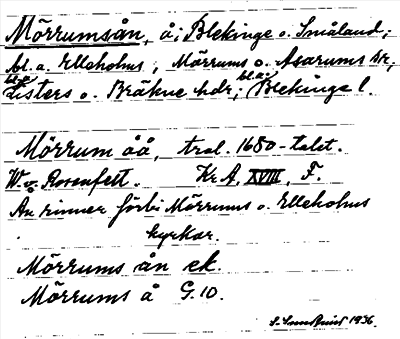 Mörrumsån, å; Blekinge o. Småland;
bl. a. Elleholms, Mörrums o. Asarums snr;
bl. a. Listers o. Bräkne hdr; bl. a. Blekinge l.
Mörrum åå, trol. 1680-talet.
W. v. Rosenfelt. Kr A, XVIII, F.
Ån rinner förbi Mörrums o. Elleholms
kyrkor.
Mörrums ån ek.
Mörrums å G. 10.
1936.